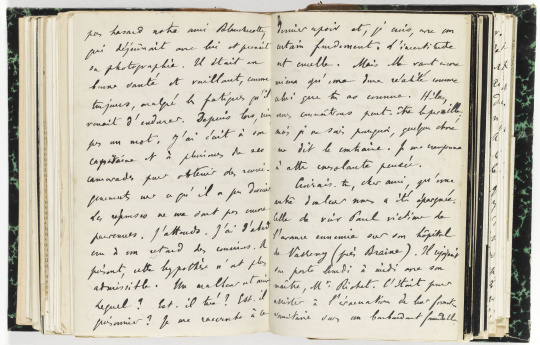 par hasard notre ami
qui déjeunait avec lui et prenait
sa photographie. Il était en
bonne santé et vaillant comme
toujours, malgré les fatigues qu'il
venait d'endurer. Depuis lors,
pas un mot, j'ai écrit à son
capitaine et à plusieurs de ses
camarades pour obtenir des rensei-
gnements sur ce qu'il a pu devenir
Les réponses ne me sont pas encore
parvenues. J'attends. J'ai d'abord
cru à un retard des courriers. À
présent, cette hypothèse n'est plus
admissible. Un malheur est arrivé
lequel ? Est-il tué ? Est-il
prisonnier ? Je me raccroche à ce
dernier espoir et, je crois, avec un
certain fondement. L'incertitude
est cruelle. Mais elle vaut encore
mieux qu'une réalité comme
celle que tu as connue. Hélas,
nous connaîtrons peut-être la pareille
mais je ne sais pourquoi, quelque chose
me dit le contraire. Je me cramponne
à cette consolante pensée.
Croirais-tu, cher ami, qu'une
autre douleur nous a été épargnée.
Celle de voir Paul victime de
l'avance ennemie sur son hôpital
de Vasseny (près Braine). Il
en porte lundi à midi avec son
maître, Mr. Richet. C'était pour
assister à l'évacuation de leur
sanitaire sous un bombardement